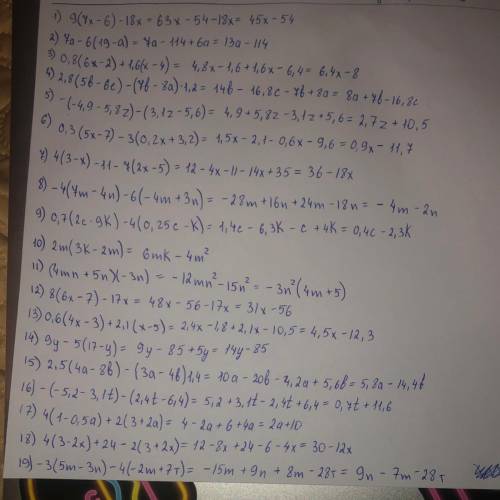 1) 9(7x-6)-18x = 63x-54-18x = 45x-54
2) 7a-6(19-a) = 7a-114+6a = 13a-114
3) 0,8(6x-2)+1,6(x-4) = 4,8x-1,6+1,6x-6,4 = 6,4x-8
4) 2,8(5b-6c)-(7b-8a)·1,2 = 14b-16,8c-7b+8a = 8a+7b-16,8c
5) -(-4,9-5,8z)-(3,1z-5,6) = 4,9+5,8z-3,1z+5,6 = 2,7z+10,5
6) 0,3(5x-7)-3(0,2x+3,2) = 1,5x-2,1-0,6x-9,6 = 0,9x-11,7
7) 4(3-x)-11-7(2x-5) = 12-4x-11-14x+35 = 36-18x
8) -4(7m-4n)-6(-4m+3n) = -28m+16n+24m-18n = -4m-2n
9) 0,7(2c-9k)-4(0,25c-k) = 1,4c-6,3k-c+4k = 0,4c-2,3k
10) 2m(3k-2m) = 6mk-4m²
11) (4mn+5n)(-3n) = -12mn²-15n² = -3n²(4m+5)
12) 8(6x-7)-17x = 48x-56-17x = 31x-56
13) 0,6(4x-3)+2,1(x-5) = 2,4x-1,8+2,1x-10,5 = 4,5x-12,3
14) 9y-5(17-y) = 9y-85+5y = 14y-85
15) 2,5(4a-8b)-(3a-4b)1,4 = 10a-20b-4,2a+5,6b = 5,8a-14,4b
16) -(-5,2-3,1t)-(2,4t-6,4) = 5,2+3,1t-2,4t+6,4 = 0,7t+11,6
17) 4(1-0,5a)+2(3+2a) = 4-2a+6+4a = 2a+10
18) 4(3-2x)+24-2(3+2x) = 12-8x+24-6-4x = 30-12x
19) -3(5m-3n)-4(-2m+7т) = -15m+9n+8m-28т = 9n-7m-28т